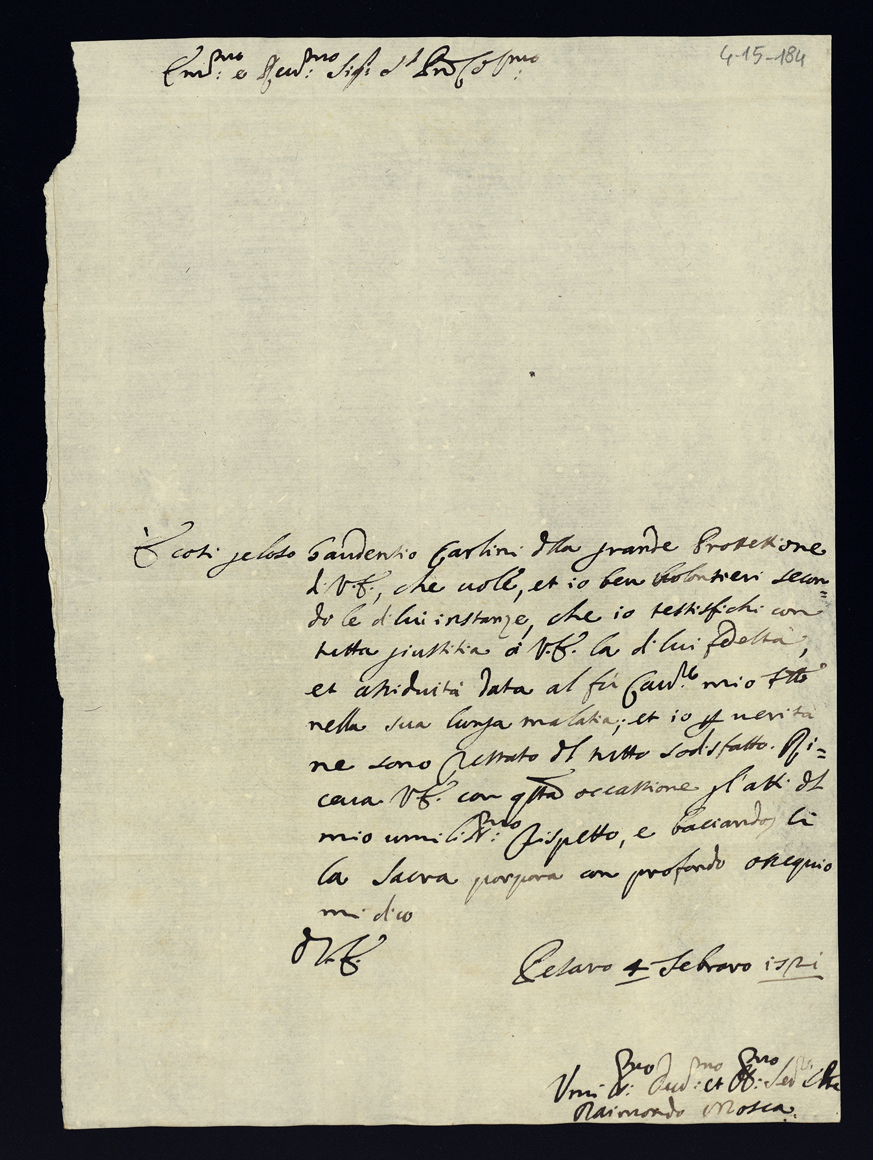 4-15-184
Em:mo e Rev:mo Sig:r
È così geloso Gaudentio Carlini della grande Protettione
di V.E., che uole, et io ben uolontieri secon=
do le di lui instanze, che io testifichi con
tutta giustitia à V.E. la di lui fedeltà,
et assiduità data al fù Cau:re mio fratello
nella sua lunga malatia; et io per uerità
ne sono restato del tutto sodisfatto. Ri=
ceua V.E. con questa occasione gl'atti del
mio umiliss:mo rispetto, e baciando li
la Sacra porpora con profondo ossequio
mi dico
D V.E.
Pesaro 4 Febraro
Umi:mo Deu:mo et Obb:mo
Raimondo Mosca